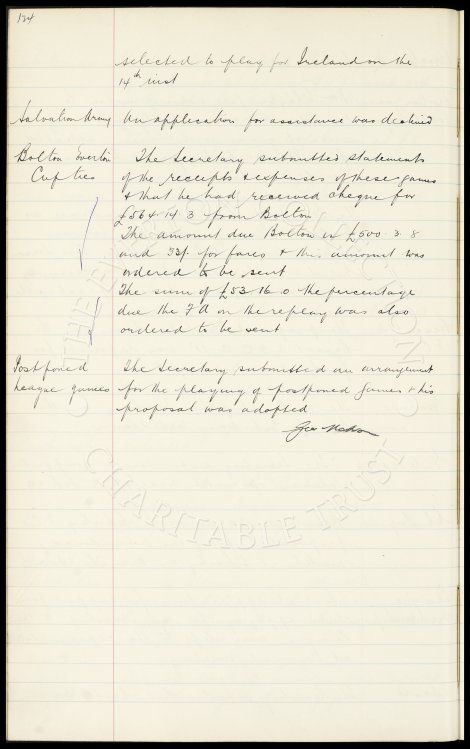 134
selected to play for Ireland on the
14th inst
Salvation Army An application for assistance was declined
Bolton Everton The Secretary submitted statements
Cup ties of the receipts & expenses of these games
& that he had received cheque for
£564.14.3 from Bolton
The amount due Bolton is £500.3.8
and 33/- for fares & this amount was
ordered to be sent
The sum of £53.16.0 the percentage
due the FA on the replay was also
ordered to be sent
Postponed The Secretary submitted an arrangement
League games for the playing of postponed games & his
proposal was adopted
CHARITABLE TRUST